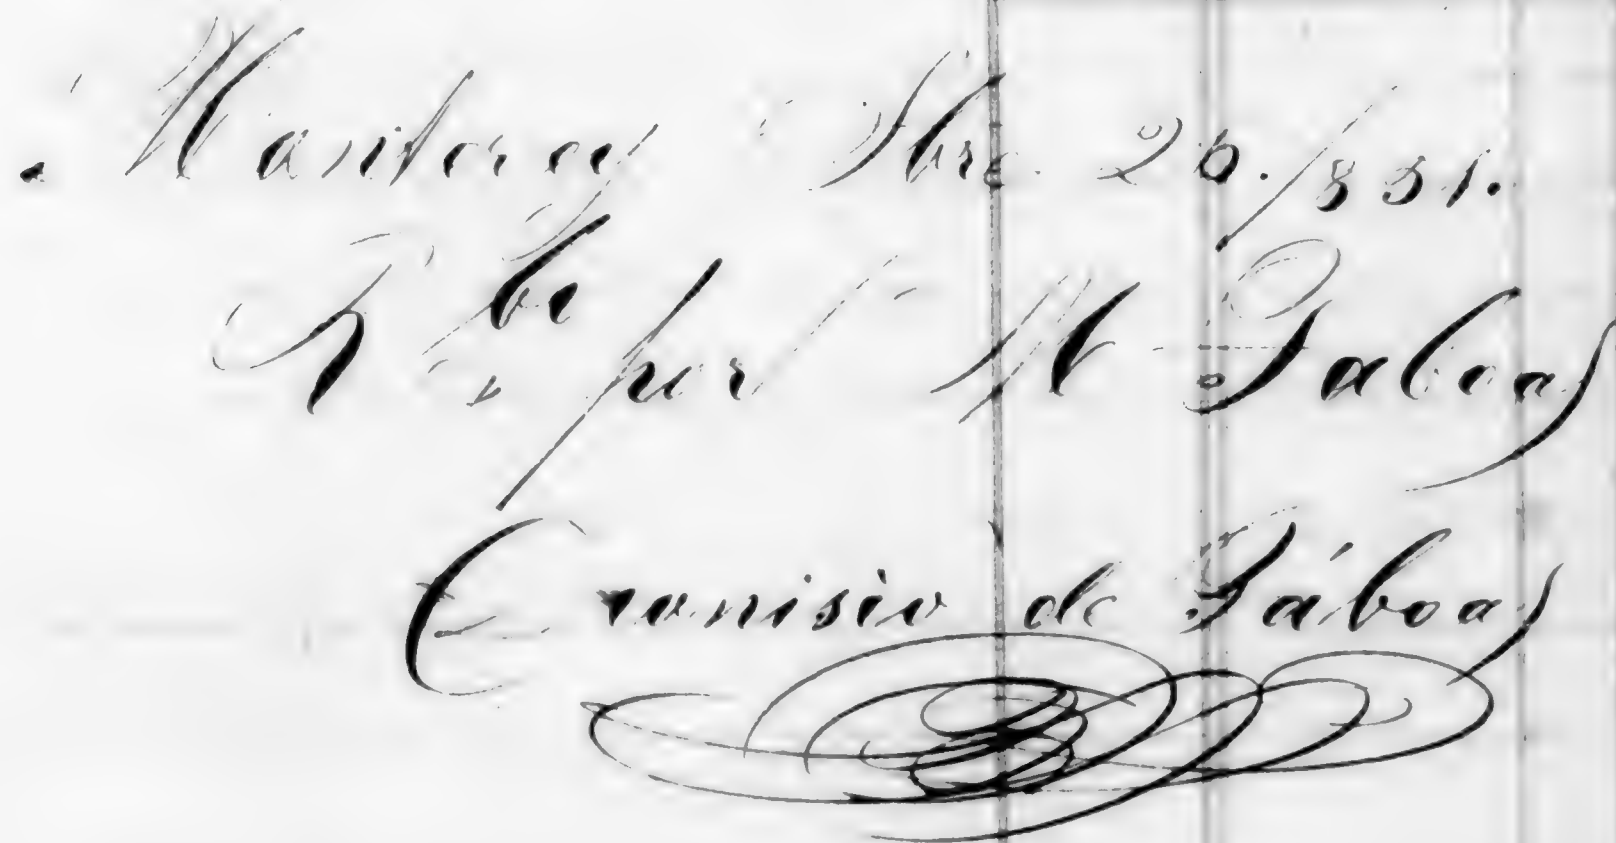 Monterey 9bre. 26./851.
R be por M Taboas
Dionisio de Táboas